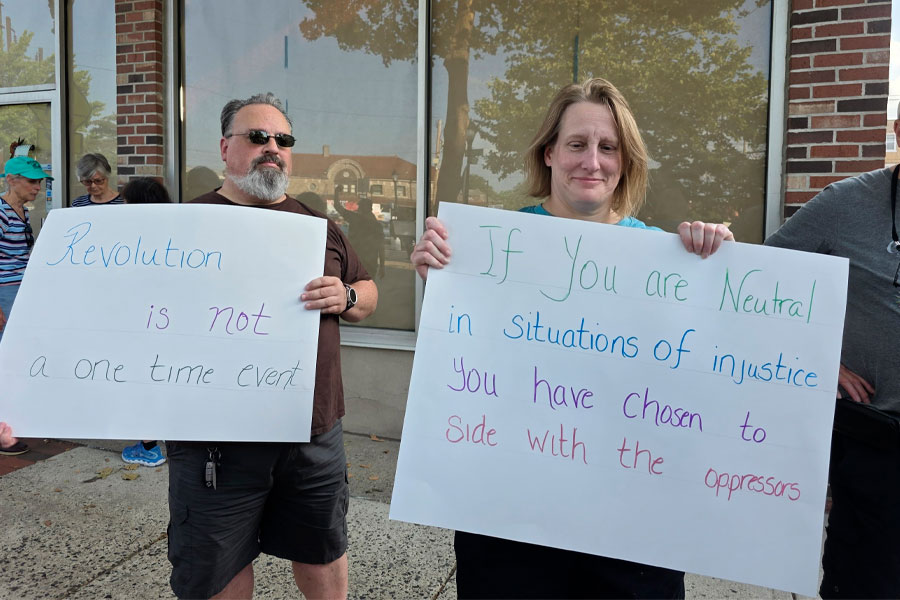 Revolution
is not
a one time event
If You are Neutral
in situations of injustice
you have chosen to
side with the oppressors